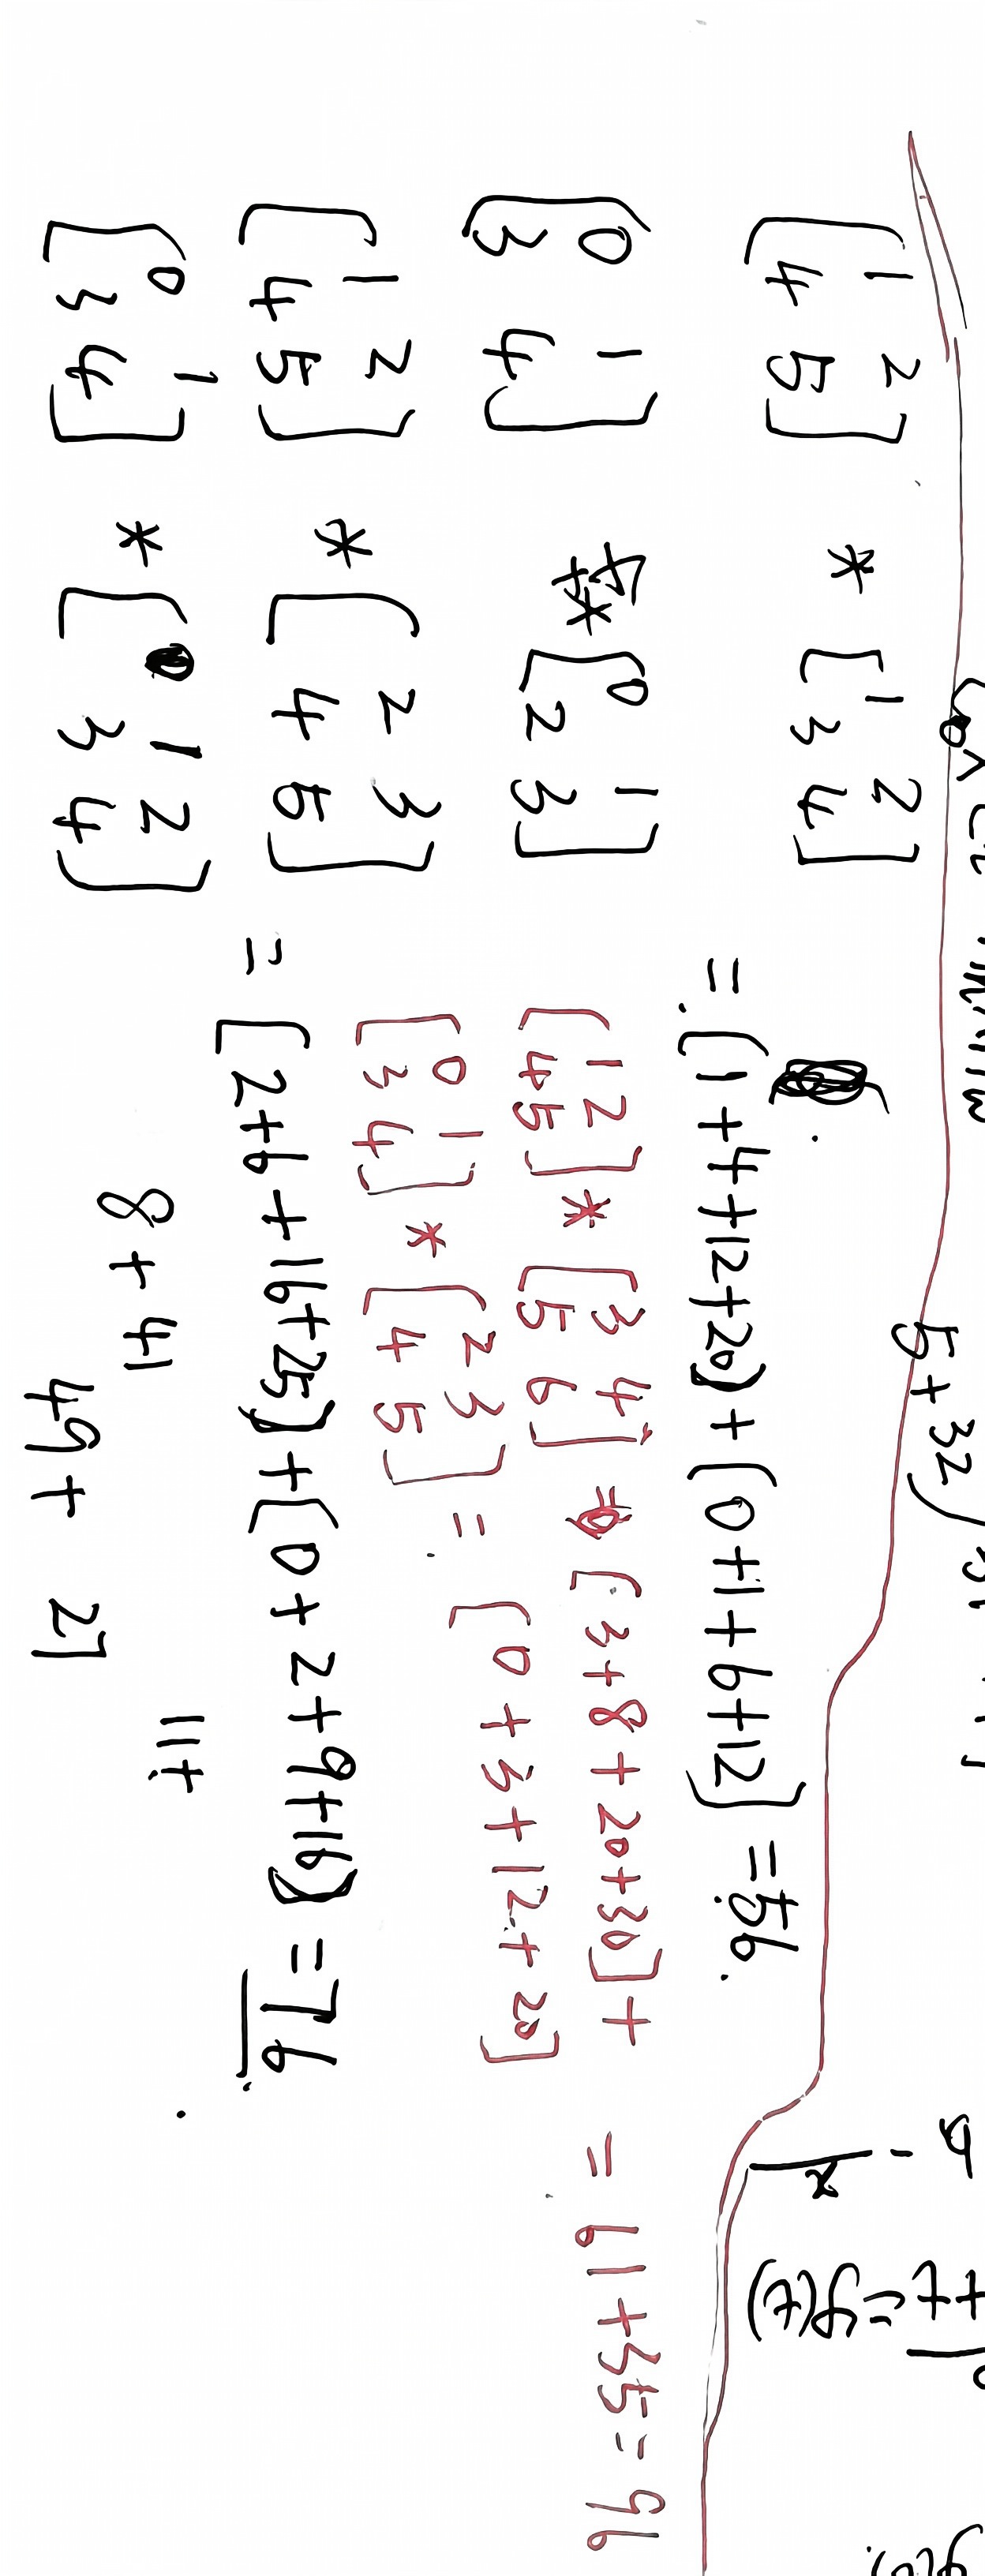 5+32)
[1 2
4 5] * [1 2
3 4]
= [1+4+12+20]+[0+1+6+12] = 56.
[0 1
3 4] * [0 1
2 3]
[1 2
4 5] * [3 4
5 6] [3+8+20+30]+ = 61+35=96
[0 1
3 4] * [2 3
4 5] = [0+3+12+20]
[1 2
4 5] * [2 3
4 5]
= [2+6+16+25]+[0+2+9+16] = 76.
[0 1
3 4] * [1 2
3 4]
8+41
11+
49+ 27
+t=y(t)